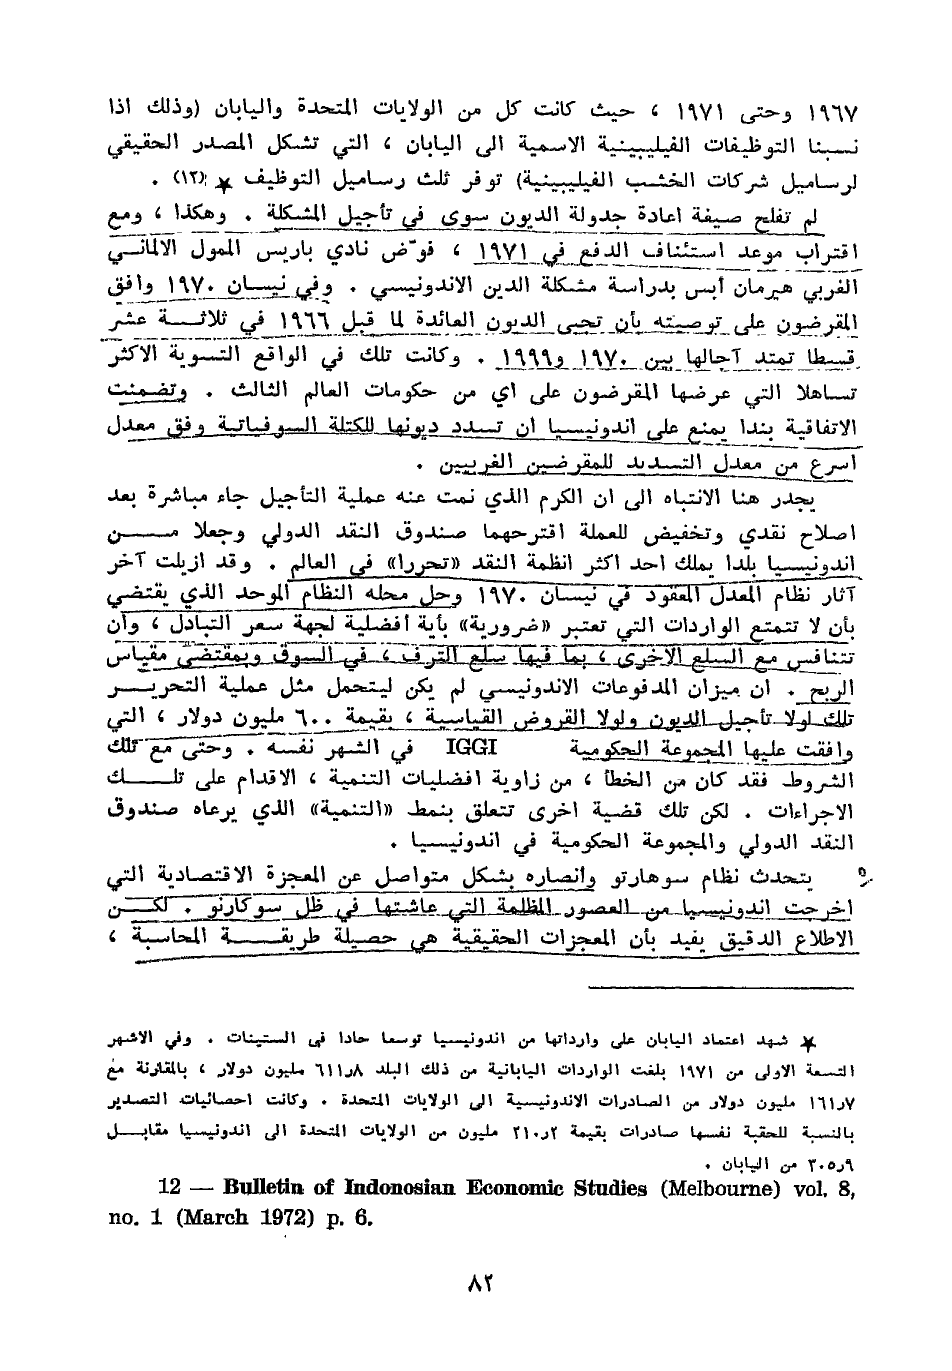 ١٩٦٧ وحتى ١٩٧١ ، حيث كانت كل من الولايات المتحدة واليابان (وذلك اذا
نسبنا التوظيفات الفيليبينية الاسمية الى اليابان ، التي تشكل المصدر الحقيقي
لرساميل شركات الخشب الفيليبينية) توفر ثلث رساميل التوظيف ★ (١٢) .
لم تفلح صيغة اعادة جدولة الديون سوى في تأجيل المشكلة . وهكذا ، ومع
اقتراب موعد استئناف الدفع في ١٩٧١ ، فوّض نادي باريس الممول الالماني
الغربي هيرمان أبس بدراسة مشكلة الدين الاندونيسي . وفي نيسان ١٩٧٠ وافق
المقرضون على توصيته بأن تجبى الديون العائدة لما قبل ١٩٦٦ في ثلاثة عشر
قسطا تمتد آجالها بين ١٩٧٠ و١٩٩٩ . وكانت تلك في الواقع التسوية الاكثر
تساهلا التي عرضها المقرضون على اي من حكومات العالم الثالث . وتضمنت
الاتفاقية بندا يمنع على اندونيسيا ان تسدد ديونها للكتلة السوفياتية وفق معدل
اسرع من معدل التسديد للمقرضين الغربيين .
يجدر هنا الانتباه الى ان الكرم الذي نمت عنه عملية التأجيل جاء مباشرة بعد
اصلاح نقدي وتخفيض للعملة اقترحهما صندوق النقد الدولي وجعلا من
اندونيسيا بلدا يملك احد اكثر انظمة النقد «تحررا» في العالم . وقد ازيلت آخر
آثار نظام المعدل المعقود في نيسان ١٩٧٠ وحل محله النظام الموحد الذي يقتضي
بأن لا تتمتع الواردات التي تعتبر «ضرورية» بأية أفضلية لجهة سعر التبادل ، وأن
تتنافس مع السلع الاخرى ، بما فيها سلع الترف ، في السوق وبمقتضى مقياس
الربح . ان ميزان المدفوعات الاندونيسي لم يكن ليتحمل مثل عملية التحرير
تلك لولا تأجيل الديون ولولا القروض القياسية ، بقيمة ٦٠٠ مليون دولار ، التي
وافقت عليها المجموعة الحكومية IGGI في الشهر نفسه . وحتى مع تلك
الشروط فقد كان من الخطأ ، من زاوية افضليات التنمية ، الاقدام على تلك
الاجراءات . لكن تلك قضية اخرى تتعلق بنمط «التنمية» الذي يرعاه صندوق
النقد الدولي والمجموعة الحكومية في اندونيسيا .
يتحدث نظام سوهارتو وانصاره بشكل متواصل عن المعجزة الاقتصادية التي
اخرجت اندونيسيا من العصور المظلمة التي عاشتها في ظل سوكارنو . لكن
الاطلاع الدقيق يفيد بأن المعجزات الحقيقية هي حصيلة طريقة المحاسبة ،
★ شهد اعتماد اليابان على وارداتها من اندونيسيا توسعا حادا في الستينات . وفي الاشهر
التسعة الاولى من ١٩٧١ بلغت الواردات اليابانية من ذلك البلد ٦١١٫٨ مليون دولار ، بالمقارنة مع
١٦١٫٧ مليون دولار من الصادرات الاندونيسية الى الولايات المتحدة . وكانت احصائيات التصدير
بالنسبة للحقبة نفسها صادرات بقيمة ٢١٠٫٢ مليون من الولايات المتحدة الى اندونيسيا مقابل
٣٠٥٫٩ من اليابان .
12 — Bulletin of Indonosian Economic Studies (Melbourne) vol. 8,
no. 1 (March 1972) p. 6.
٨٢